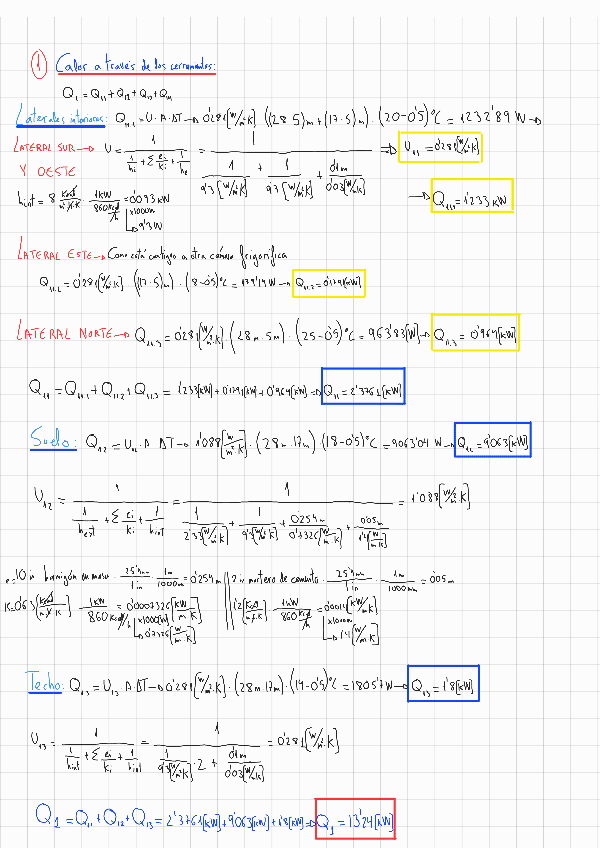 ① Calor a través de los cerramientos:
Q₁ = Q₁₁ + Q₁₂ + Q₁₃ + Q₁₄
Laterales interiores: Q₁₁.₁ = U · A · ΔT → 0'281[W/m²·K] · ((28·5)m + (17·5)m) · (20-0'5)°C = 1232'89 W →
LATERAL SUR → U = 1 / (1/hi + Σ ei/ki + 1/he) = 1 / (1/9'3[W/m²·K] + 1/9'3[W/m²·K] + 0'1m/0'03[W/m·K]) ⇒ U₁₁ = 0'281[W/m²·K]
Y OESTE
hint = 8 Kcal/m²·h·K · 1KW/860Kcal/h = 0'0093 KW
x1000
→ 9'3W
→ Q₁₁.₁ = 1'233 KW
LATERAL ESTE → Como está contiguo a otra cámara frigorífica
Q₁₁.₂ = 0'281[W/m²·K] · ((17·5)m) · (8-0'5)°C = 179'14 W → Q₁₁.₂ = 0'179[KW]
LATERAL NORTE → Q₁₁.₃ = 0'281[W/m²·K] · (28m·5m) · (25-0'5)°C = 963'83[W] → Q₁₁.₃ = 0'964[KW]
Q₁₁ = Q₁₁.₁ + Q₁₁.₂ + Q₁₁.₃ = 1'233[KW] + 0'179[KW] + 0'964[KW] ⇒ Q₁₁ = 2'3761[KW]
Suelo: Q₁₂ = U₁₂ · A · ΔT → 1'088[W/m²·K] · (28m·17m) · (18-0'5)°C = 9063'04 W → Q₁₂ = 9'063[KW]
U₁₂ = 1 / (1/hest + Σ ei/ki + 1/hint) = 1 / (1/2'33[W/m²·K] + 1/9'3[W/m²·K] + 0'254m/0'7326[W/m·K] + 0'05m/1'4[W/m·K]) = 1'088[W/m²·K]
e=10 in hormigón en masa · 25'4mm/1in · 1m/1000mm = 0'254m || 2 in mortero de cemento · 25'4mm/1in · 1m/1000mm = 0'05m
K=0'63[Kcal/m·h·K] · 1KW/860Kcal/h = 0'0007326[KW/m·K] || 1'2[Kcal/m·h·K] · 1KW/860Kcal/h = 0'0014[KW/m·K]
x1000[W] → 0'7326[W/m·K] || x1000W → 1'4[W/m·K]
Techo: Q₁₃ = U₁₃ · A · ΔT → 0'281[W/m²·K] · (28m·17m) · (14-0'5)°C = 1805'7W → Q₁₃ = 1'8[KW]
U₁₃ = 1 / (1/hint + Σ ei/ki + 1/hint) = 1 / (1/9'3[W/m²·K] · 2 + 0'1m/0'03[W/m·K]) = 0'281[W/m²·K]
Q₁ = Q₁₁ + Q₁₂ + Q₁₃ = 2'3761[KW] + 9'063[KW] + 1'8[KW] ⇒ Q₁ = 13'24[KW]